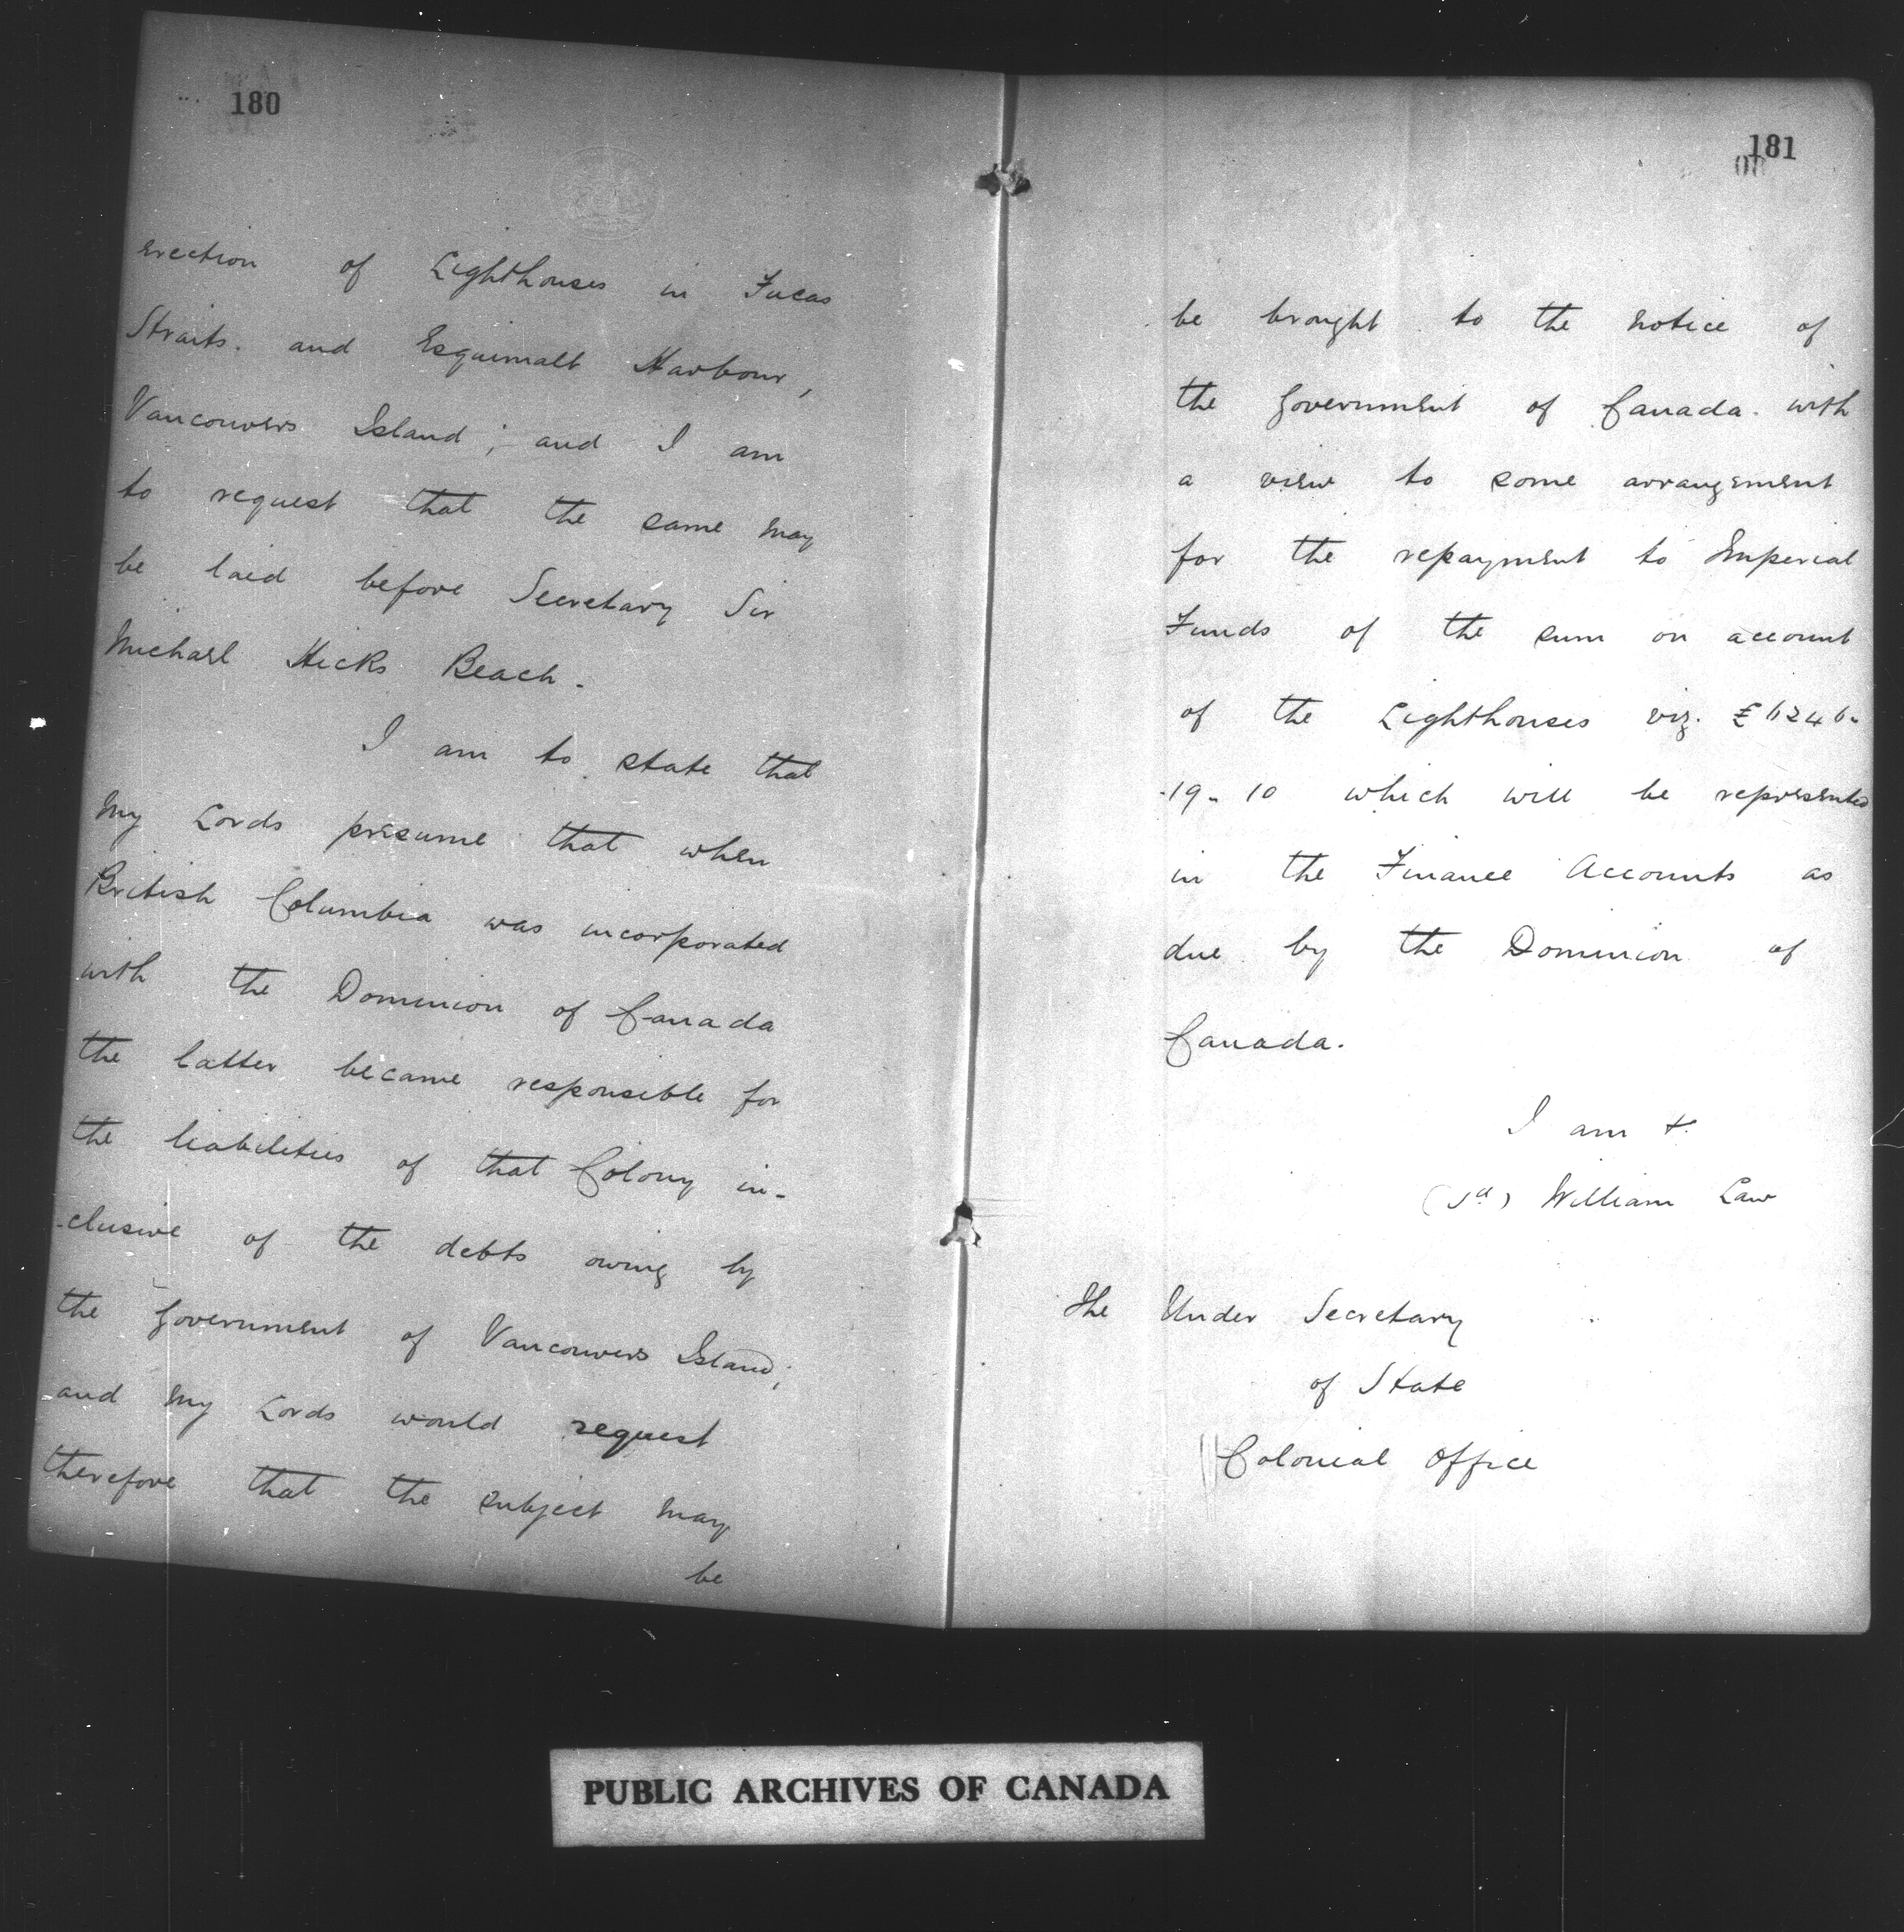 180
erection of Lighthouses in Fucas
Straits. and Esquimalt Harbour,
Vancouvers Island; and I am
to request that the same may
be laid before Secretary Sir
Michael Hicks Beach.
I am to state that
My Lords presume that when
British Columbia was incorporated
with the Dominion of Canada
the latter became responsible for
the liabilities of that Colony in-
-clusive of the debts owing by
the Government of Vancouvers Island;
and My Lords would request
therefore that the subject may
be
181
be brought to the notice of
the Government of Canada. with
a view to some arrangement
for the repayment to Imperial
Funds of the sum on account
of the Lighthouses viz. £6246-
-19-10 which will be represented
in the Finance Accounts as
due by the Dominion of
Canada.
I am &.
(Sd) William Law
The Under Secretary
of State
Colonial Office
PUBLIC ARCHIVES OF CANADA